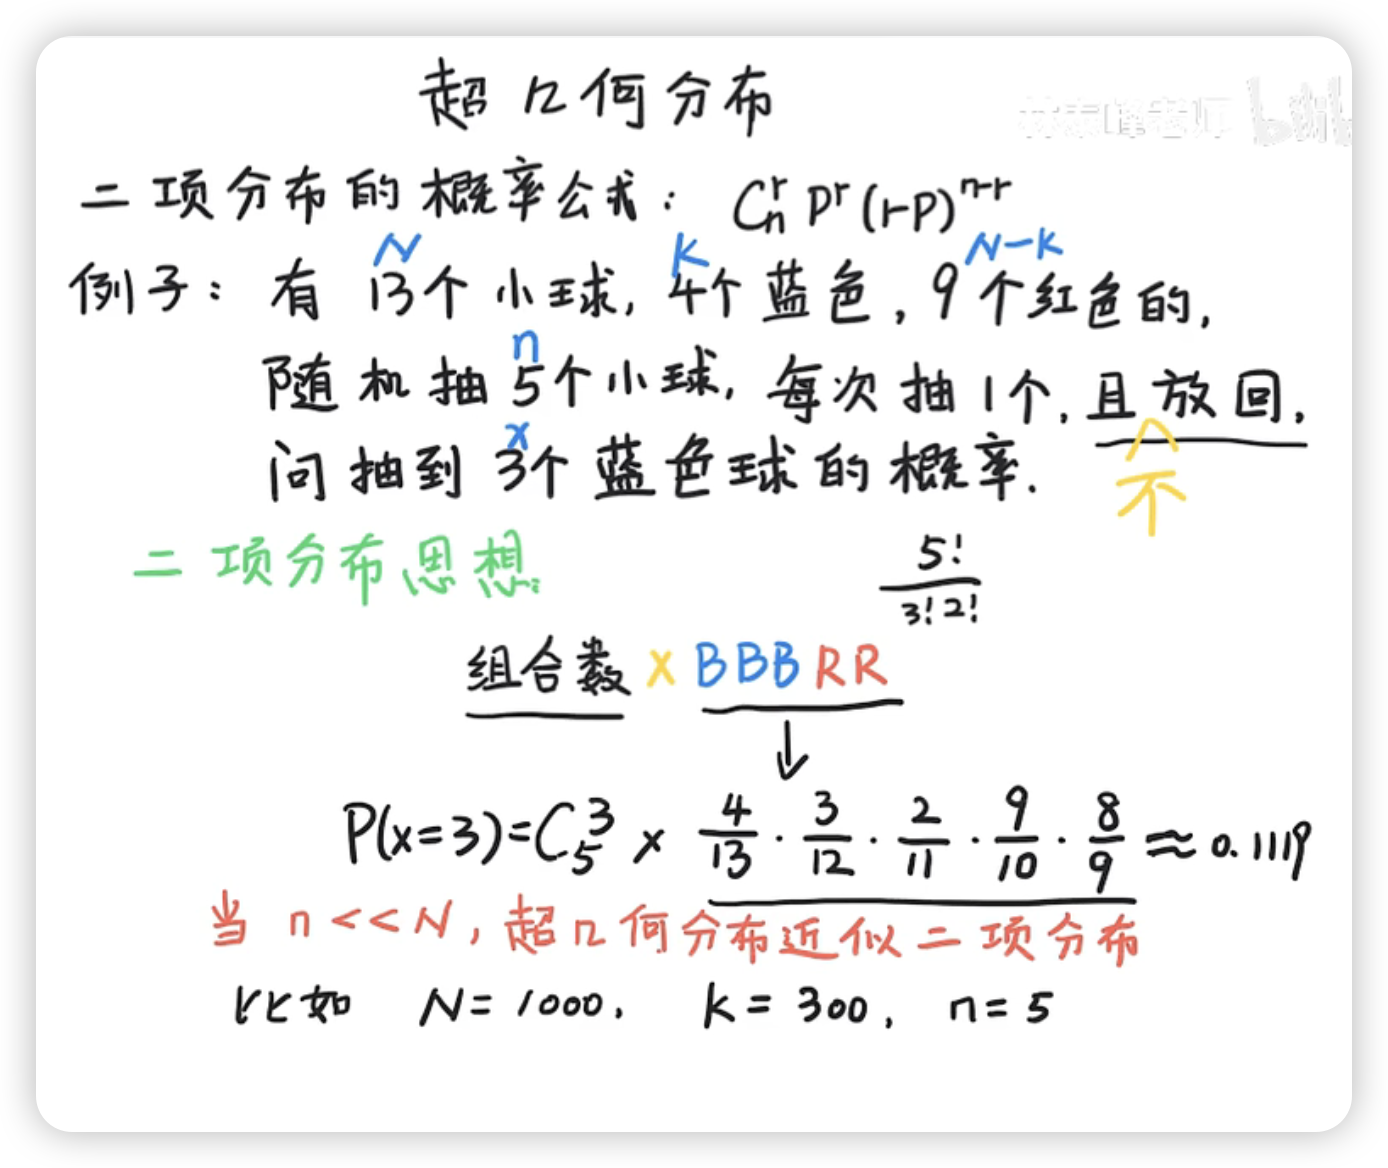 超几何分布
林泰峰老师 bilibili
二项分布的概率公式: C_n^r P^r (1-P)^{n-r}
N K N-K
例子: 有 13个小球, 4个蓝色, 9个红色的,
n
随机抽5个小球, 每次抽1个, 且放回,
x
问抽到3个蓝色球的概率. 不
二项分布思想:
5!/3!2!
组合数 × BBBRR
↓
P(x=3)=C_5^3 × 4/13 · 3/12 · 2/11 · 9/10 · 8/9 ≈ 0.1119
当 n<<N, 超几何分布近似二项分布
比如 N=1000, K=300, n=5